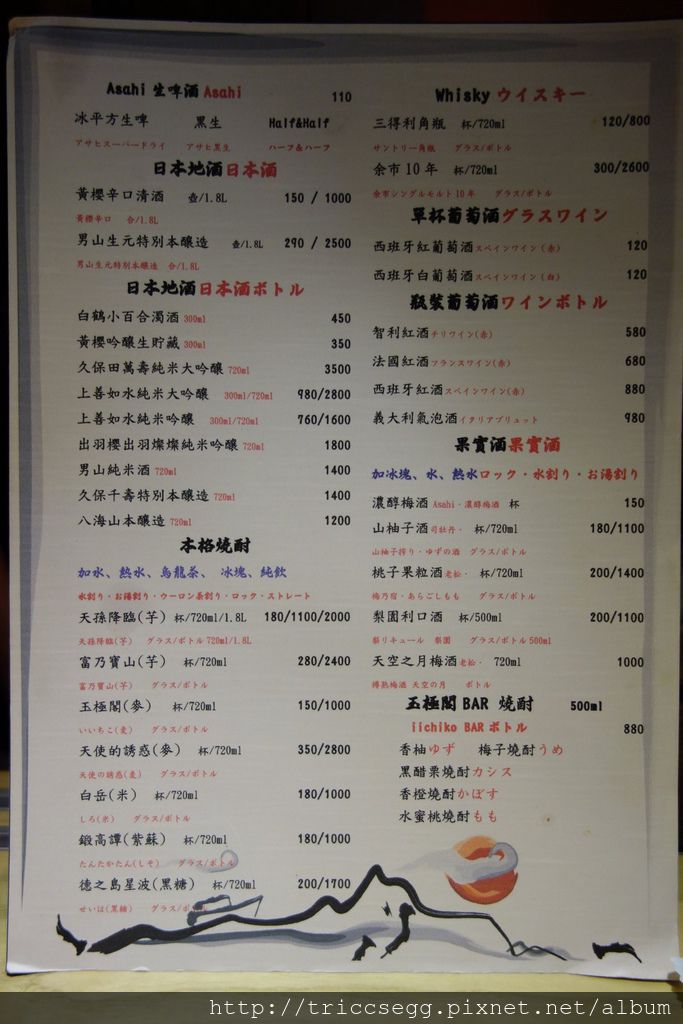 Asahi 生啤酒 Asahi 110
冰平方生啤 黑生 Half&Half
アサヒスーパードライ アサヒ黒生 ハーフ&ハーフ
日本地酒 日本酒
黃櫻辛口清酒 壺/1.8L 150 / 1000
黄櫻辛口 合/1.8L
男山生元特別本釀造 壺/1.8L 290 / 2500
男山生元特別本醸造 合/1.8L
日本地酒 日本酒ボトル
白鶴小百合濁酒 300ml 450
黃櫻吟釀生貯藏 300ml 350
久保田萬壽純米大吟釀 720ml 3500
上善如水純米大吟釀 300ml/720ml 980/2800
上善如水純米吟釀 300ml/720ml 760/1600
出羽櫻出羽燦燦純米吟釀 720ml 1800
男山純米酒 720ml 1400
久保千壽特別本釀造 720ml 1400
八海山本釀造 720ml 1200
本格燒酎
加水、熱水、烏龍茶、 冰塊、純飲
水割り・お湯割り・ウーロン茶割り・ロック・ストレート
天孫降臨(芋) 杯/720ml/1.8L 180/1100/2000
天孫降臨(芋) グラス/ボトル 720ml/1.8L
富乃寶山(芋) 杯/720ml 280/2400
富乃寶山(芋) グラス/ボトル
玉極閣(麥) 杯/720ml 150/1000
いいちこ(麦) グラス/ボトル
天使的誘惑(麥) 杯/720ml 350/2800
天使の誘惑(麦) グラス/ボトル
白岳(米) 杯/720ml 180/1000
しろ(米) グラス/ボトル
鍛高譚(紫蘇) 杯/720ml 180/1000
たんたかたん(しそ) グラス/ボトル
德之島星波(黑糖) 杯/720ml 200/1700
せいは(黒糖) グラス/ボトル
Whisky ウイスキー
三得利角瓶 杯/720ml 120/800
サントリー角瓶 グラス/ボトル
余市 10 年 杯/720ml 300/2600
余市シングルモルト 10 年 グラス/ボトル
單杯葡萄酒 グラスワイン
西班牙紅葡萄酒 スペインワイン(赤) 120
西班牙白葡萄酒 スペインワイン(白) 120
瓶裝葡萄酒 ワインボトル
智利紅酒 チリワイン(赤) 580
法國紅酒 フランスワイン(赤) 680
西班牙紅酒 スペインワイン(赤) 880
義大利氣泡酒 イタリアブリュット 980
果實酒 果實酒
加冰塊、水、熱水 ロック・水割り・お湯割り
濃醇梅酒 Asahi・濃醇梅酒 杯 150
山柚子酒 司牡丹・ 杯/720ml 180/1100
山柚子搾り・ゆずの酒 グラス/ボトル
桃子果粒酒 老松・ 杯/720ml 200/1400
梅乃宿・あらごしもも グラス/ボトル
梨園利口酒 杯/500ml 200/1100
梨リキュール 梨園 グラス/ボトル 500ml
天空之月梅酒 老松・ 720ml 1000
樽熟梅酒 天空の月 ボトル
玉極閣 BAR 燒酎 500ml
iichiko BAR ボトル 880
香柚ゆず 梅子燒酎うめ
黑醋栗燒酎カシス
香橙燒酎かぼす
水蜜桃燒酎もも
http://triccsegg.pixnet.net/album